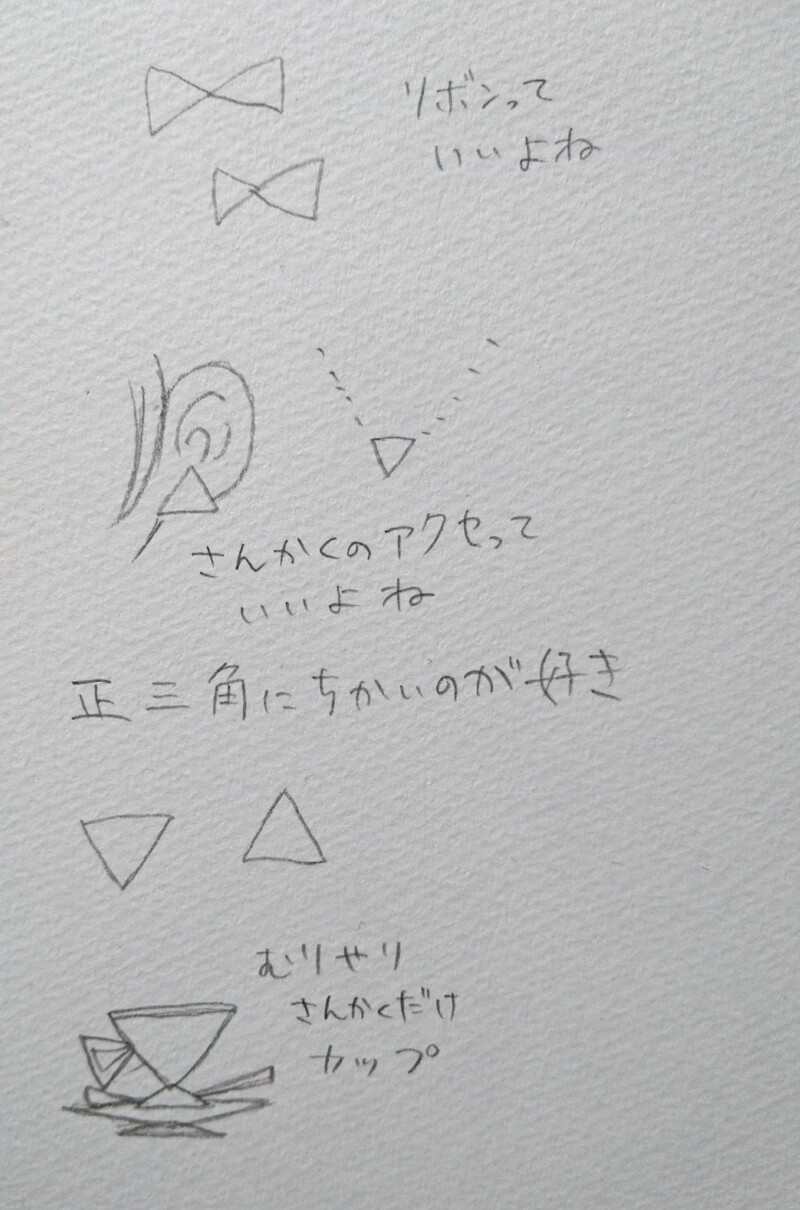 リボンって
いいよね
さんかくのアクセって
いいよね
正三角にちかいのが好き
むりやり
さんかくだけ
カップ